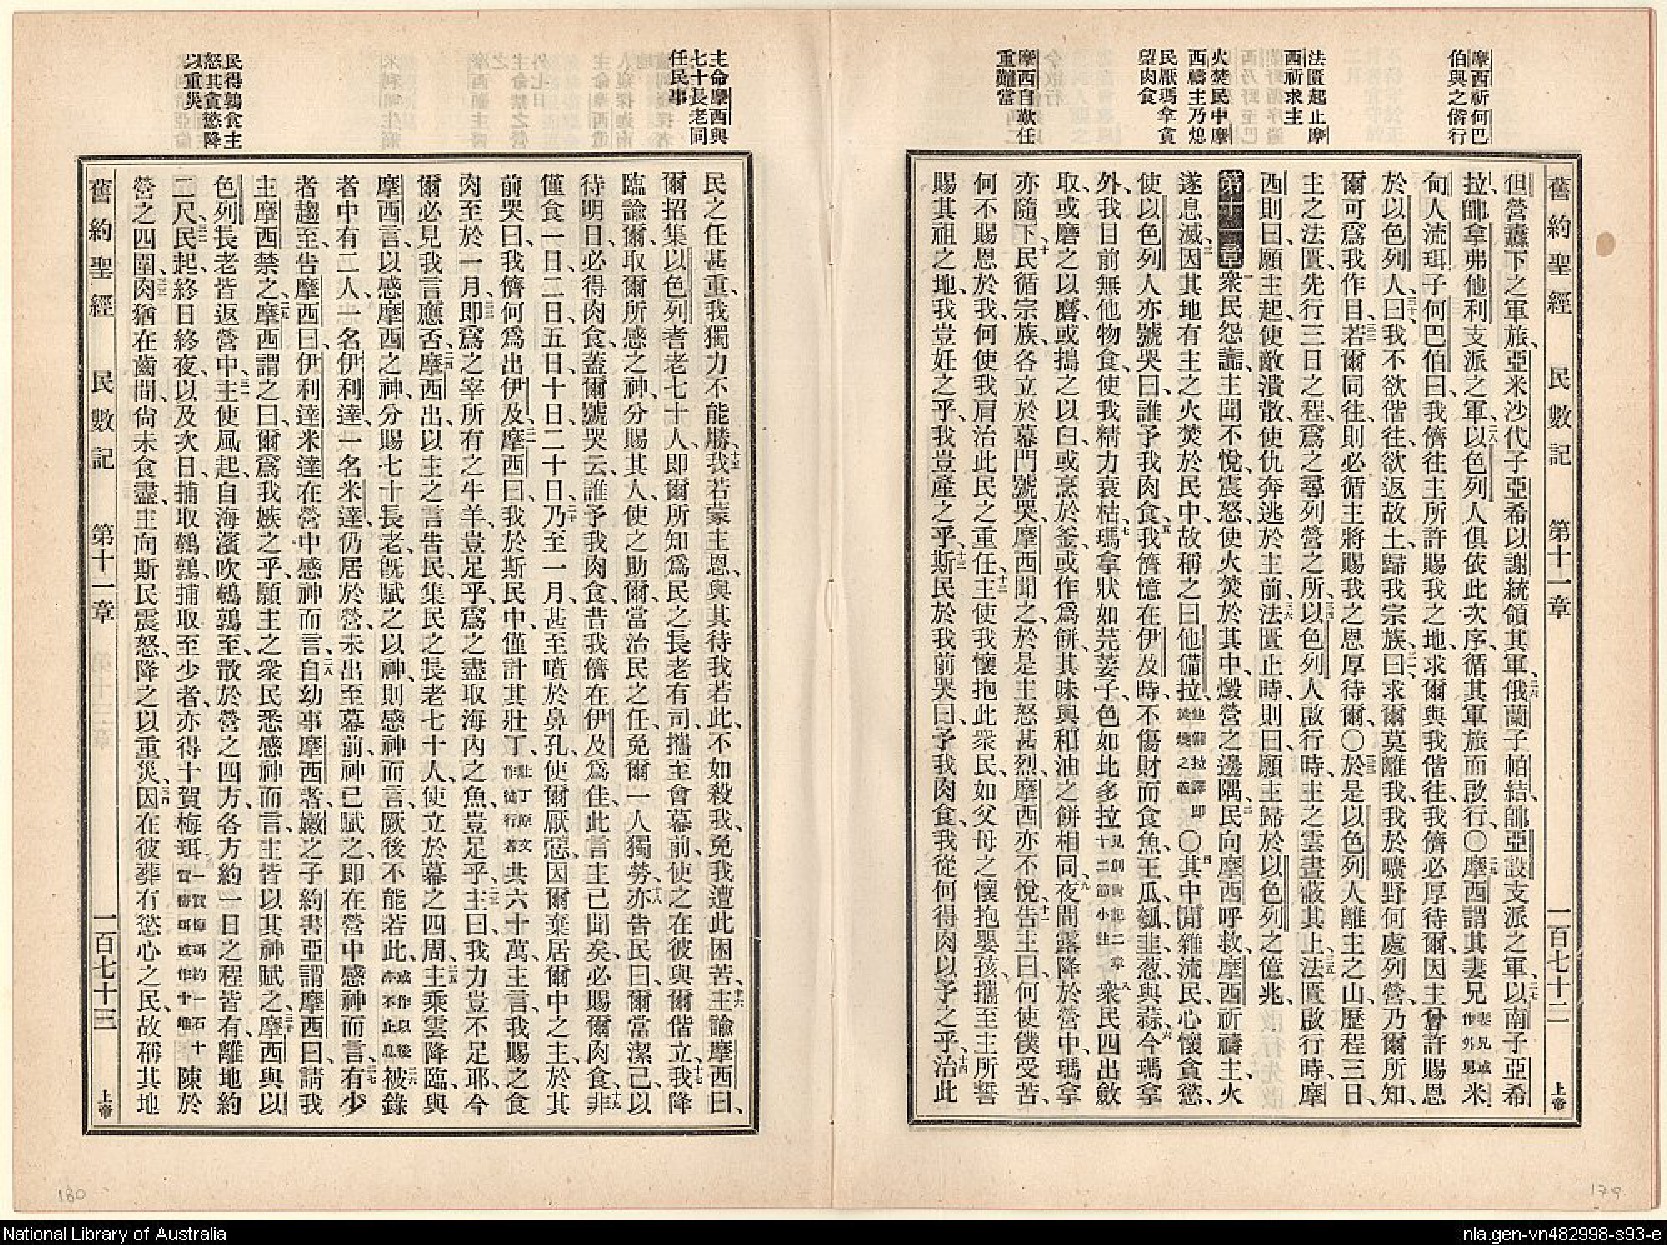 摩西祈何巴
伯與之偕行
法匱起止摩
西祈求主
火焚民中摩
西禱主乃熄
民厭瑪拿貪
望肉食
摩西自歎任
重難當
舊約聖經 民數記 第十一章 一百七十二 上帝
但營纛下之軍旅、亞米沙代子亞希以謝統領其軍、俄蘭子帕結、帥亞設支派之軍、以南子亞希
拉、帥拿弗他利支派之軍、以色列人俱依此次序、循其軍旅而啟行、〇摩西謂其妻兄米
甸人流珥子何巴伯曰、我儕往主所許賜我之地、求爾與我偕往、我儕必厚待爾、因主曾許賜恩
於以色列人、曰、我不欲偕往、欲返故土、歸我宗族、曰、求爾莫離我、我於曠野何處列營、乃爾所知、
爾可為我作目、若爾同往、則必循主將賜我之恩厚待爾、〇於是以色列人離主之山、歷程三日、
主之法匱先行三日之程、為之尋列營之所、以色列人啟行時、主之雲晝蔽其上、法匱啟行時、摩
西則曰、願主起、使敵潰散、使仇奔逃於主前、法匱止時、則曰、願主歸於以色列之億兆、
第十一章 衆民怨讟、主聞不悅、震怒、使火焚於其中、燬營之邊隅、民向摩西呼救、摩西祈禱主、火
遂息滅、因其地有主之火焚於民中、故稱之曰他備拉、他備拉譯即焚燒之義 〇其中閒雜流民、心懷貪慾、
使以色列人亦號哭曰、誰予我肉食、我儕憶在伊及時、不傷財而食魚、王瓜、瓠、韭、葱、與蒜、今瑪拿
外、我目前無他物食、使我精力衰枯、瑪拿狀如芫荽子、色如比多拉、見創世記二章十二節小註 衆民四出斂
取、或磨之以磨、或搗之以臼、或烹於釜、或作為餅、其味與和油之餅相同、夜間露降於營中、瑪拿
亦隨下、民循宗族、各立於幕門號哭、摩西聞之、於是主怒甚烈、摩西亦不悅、告主曰、何使僕受苦、
何不賜恩於我、何使我肩治此民之重任、主使我懷抱此衆民、如父母之懷抱嬰孩、攜至主所誓
賜其祖之地、我豈妊之乎、我豈產之乎、斯民於我前哭曰、予我肉食、我從何得肉以予之乎、治此
主命摩西與
七十長老同
任民事
民得鶉食主
怒其貪慾降
以重災
民之任甚重、我獨力不能勝、我若蒙主恩、與其待我若此、不如殺我、免我遭此困苦、主諭摩西曰、
爾招集以色列者老七十人、即爾所知為民之長老有司、攜至會幕前、使之在彼與爾偕立、我降
臨諭爾、取爾所感之神、分賜其人、使之助爾、當治民之任、免爾一人獨勞、亦告民曰、爾當潔己以
待明日、必得肉食、蓋爾號哭云、誰予我肉食、昔我儕在伊及為佳、此言主已聞矣、必賜爾肉食、非
僅食一日、二日、五日、十日、二十日、乃至一月、甚至噴於鼻孔、使爾厭惡、因爾棄居爾中之主、於其
前哭曰、我儕何為出伊及、摩西曰、我於斯民中、僅計其壯丁、壯丁原文作徒行者 共六十萬、主言、我賜之食
肉至於一月、即為之宰所有之牛羊、豈足乎、為之盡取海內之魚、豈足乎、主曰、我力豈不足耶、今
爾必見我言應否、摩西出、以主之言告民、集民之長老七十人、使立於幕之四周、主乘雲降臨、與
摩西言、以感摩西之神、分賜七十長老、既賦之以神、則感神而言、厥後不能若此、或作以後亦不止息 被錄
者中有二人、一名伊利達、一名米達、仍居於營、未出至幕前、神已賦之、即在營中感神而言、有少
者趨至、告摩西曰、伊利達米達在營中感神而言、自幼事摩西者、嫩之子約書亞謂摩西曰、請我
主摩西禁之、摩西謂之曰、爾為我嫉之乎、願主之衆民悉感神而言、主皆以其神賦之、摩西與以
色列長老皆返營中、主使風起、自海濱吹鵪鶉至、散於營之四方、各方約一日之程皆有、離地約
二尺、民起、終日終夜、以及次日、捕取鵪鶉、捕取至少者、亦得十賀梅珥、 陳於
營之四圍、肉猶在齒間、尚未食盡、主向斯民震怒、降之以重災、因在彼葬有慾心之民、故稱其地
舊約聖經 民數記 第十一章 一百七十三 上帝
180
179
National Library of Australia
nla.gen-vn482998-s93-e